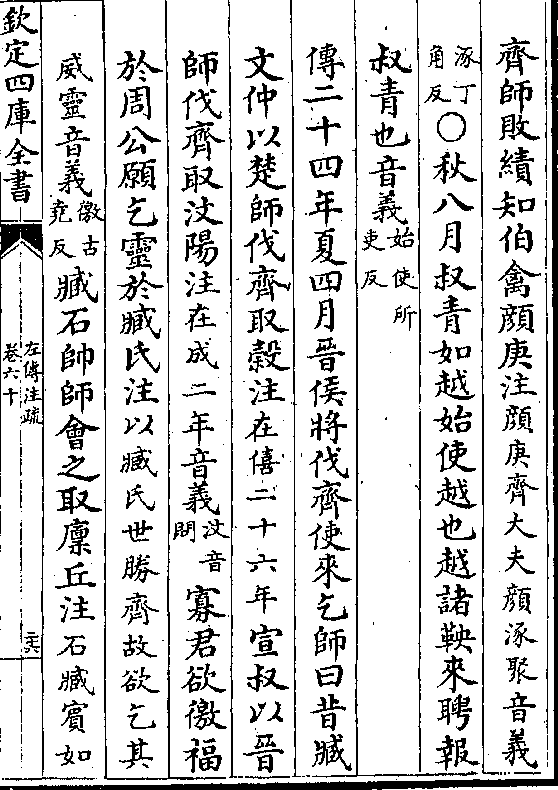 齊師敗績知伯禽顔庚注顔庚齊大夫顔涿聚音義
涿丁角反〇秋八月叔青如越始使越也越諸鞅來聘報
叔青也音義始使所吏反
傳二十四年夏四月晉侯將伐齊使來乞師曰昔臧
文仲以楚師伐齊取穀注在僖二十六年宣叔以晉
師伐齊取汶陽注在成二年音義汶音問寡君欲徼福
於周公願乞靈於臧氏注以臧氏世勝齊故欲乞其
威靈音義徼古堯反臧石帥師會之取廩丘注石臧賓如
欽定四庫全書
左傳注疏
卷六十
二六